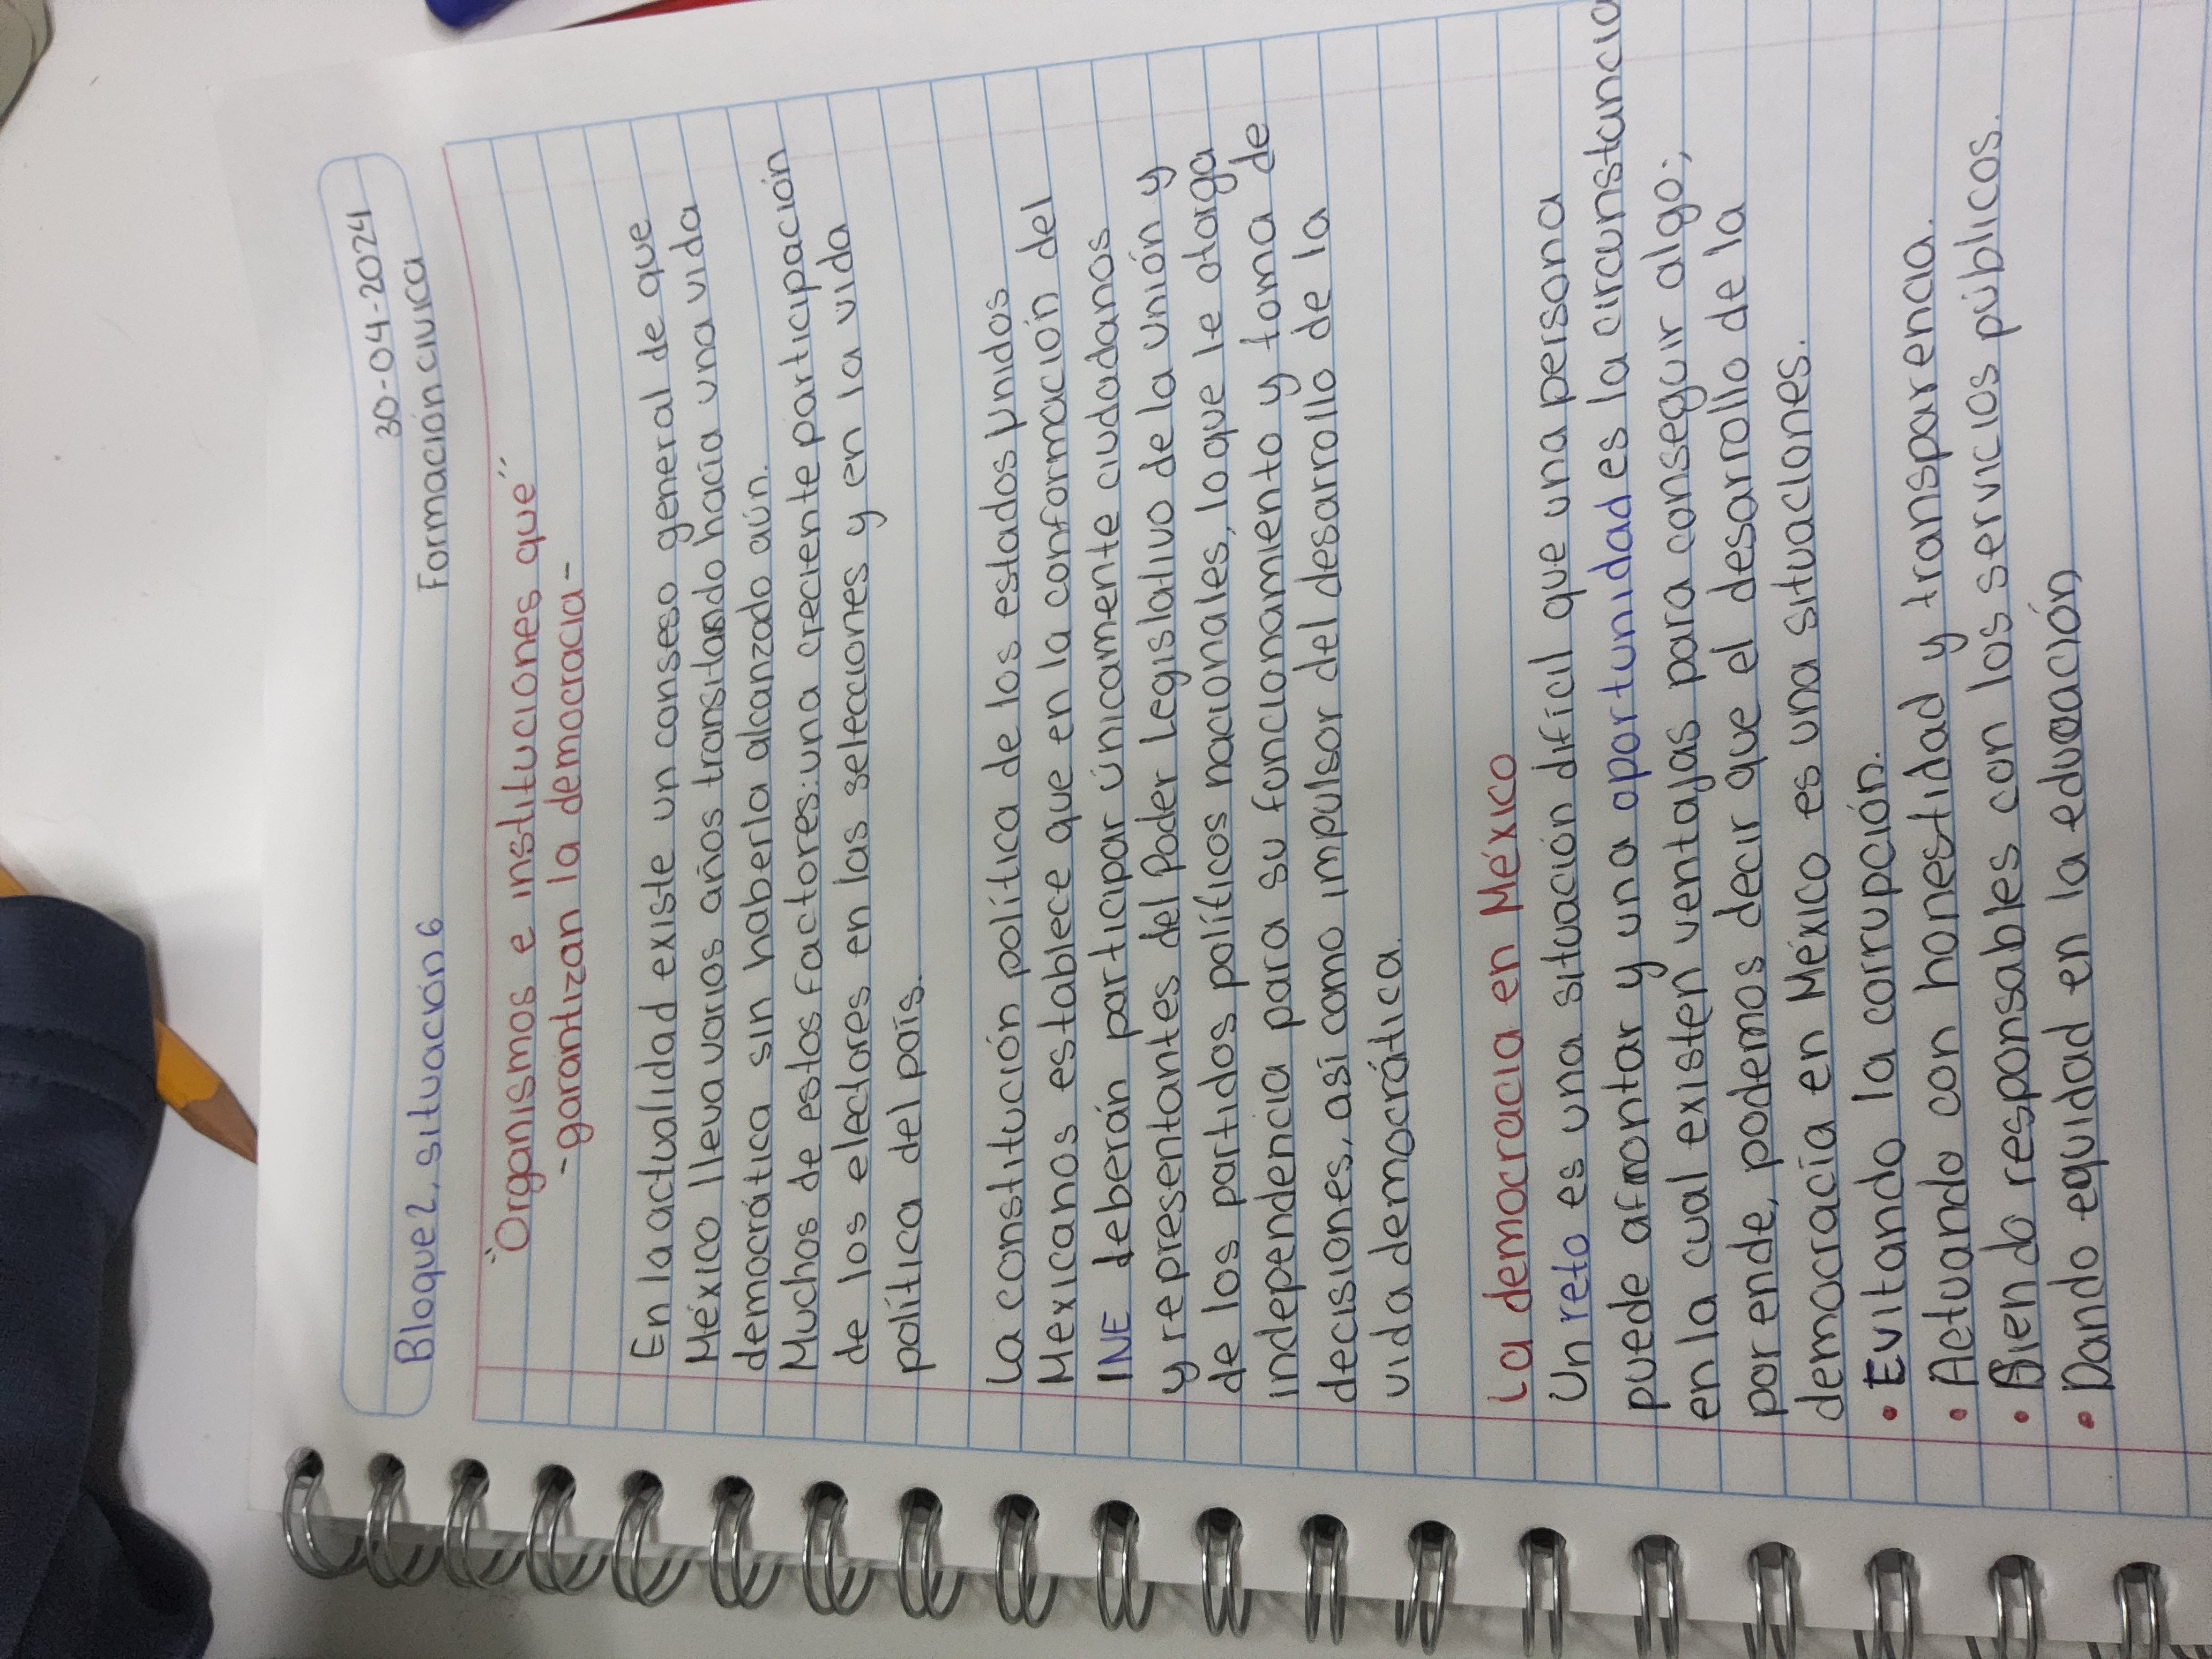 30-04-2024
Bloque 2, situación 6 Formación civica
"Organismos e instituciones que"
-garantizan la democracia-
En la actualidad existe un conseso general de que
México lleva varios años transitando hacía una vida
democrática sin haberla alcanzado aún.
Muchos de estos factores: una creciente participación
de los electores en las selecciones y en la vida
política del país.
La constitución política de los estados Unidos
Mexicanos establece que en la conformación del
INE deberán participar únicamente ciudadanos
y representantes del Poder Legislativo de la Unión y
de los partidos políticos nacionales, lo que le otorga
independencia para su funcionamiento y toma de
decisiones, así como impulsor del desarrollo de la
vida democrática.
La democracia en México
Un reto es una situación difícil que una persona
puede afrontar y una oportunidad es la circunstancia
en la cual existen ventajas para conseguir algo;
por ende, podemos decir que el desarrollo de la
democracía en México es una situaciones.
• Evitando la corrupción.
• Actuando con honestidad y transparencia.
• Siendo responsables con los servicios públicos.
• Dando equidad en la educación